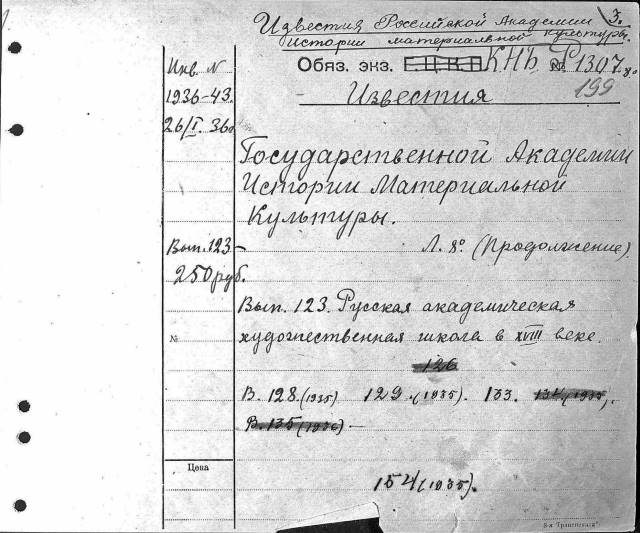 Известия Российской Академии 3.
истории материальной культуры.
Обяз. экз. Е.Ц.К.П КНЪ № Р1307 8°
199
Известия
Инв. N
1936-43.
26/I. 36
Государственной Академии
Истории Материальной
Культуры.
Вып. 123 – Л. 8° (Продолжение).
250 руб.
Вып. 123. Русская академическая
№ художественная школа в XVIII веке.
126
В. 128. (1935) 129. (1935). 133. 134 (1935).
В. 135 (1936) –
Цена
154 (1935).